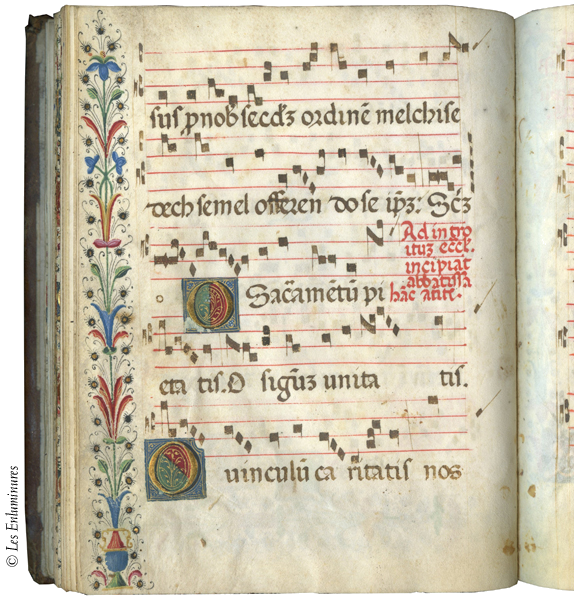 sus p nob secdȝ ordinē melchise
dech semel offeren do se ip̄ȝ: Scȝ
Ad intro
ituȝ eccl̄.
incipiat
abbatissa
hāc antē.
O Sacr̄amētū pi
eta tis. O signūȝ unita tis.
O uinculū ca ritatis nos
© Les Enluminures